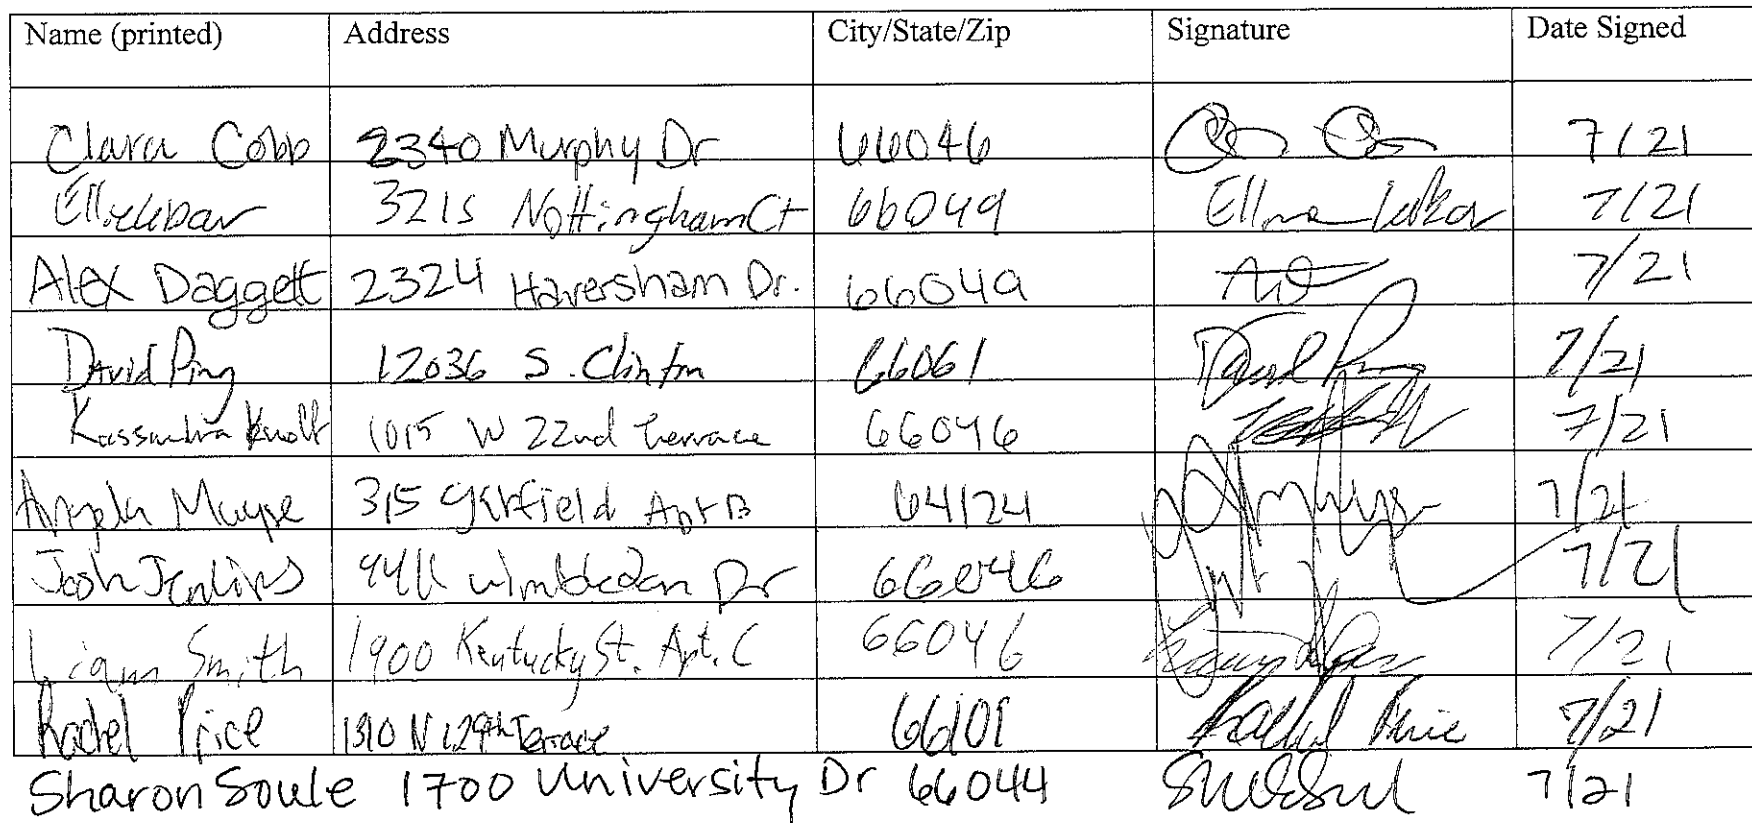 Name (printed) Address City/State/Zip Signature Date Signed
Clara Cobb 2340 Murphy Dr 66046 7/21
3215 Nottingham Ct 66049 7/21
Alex Daggett 2324 Haversham Dr. 66049 AD 7/21
David Ping 12036 S. Clinton 66061 David Ping 7/21
Kassandra Knoff 1015 W 22nd terrace 66046 7/21
Angela Mayse 315 Apt B 64124 7/21
Josh Jenkins Dr 66046 7/21
Liam Smith 1900 Kentucky St. Apt. C 66046 7/21
Rachel Price 1310 N 129th Terrace 66109 Rachel Price 7/21
Sharon Soule 1700 University Dr 66044 7/21